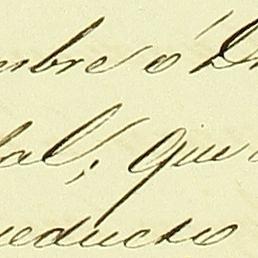 mbre ó D
tal, que
ueducto